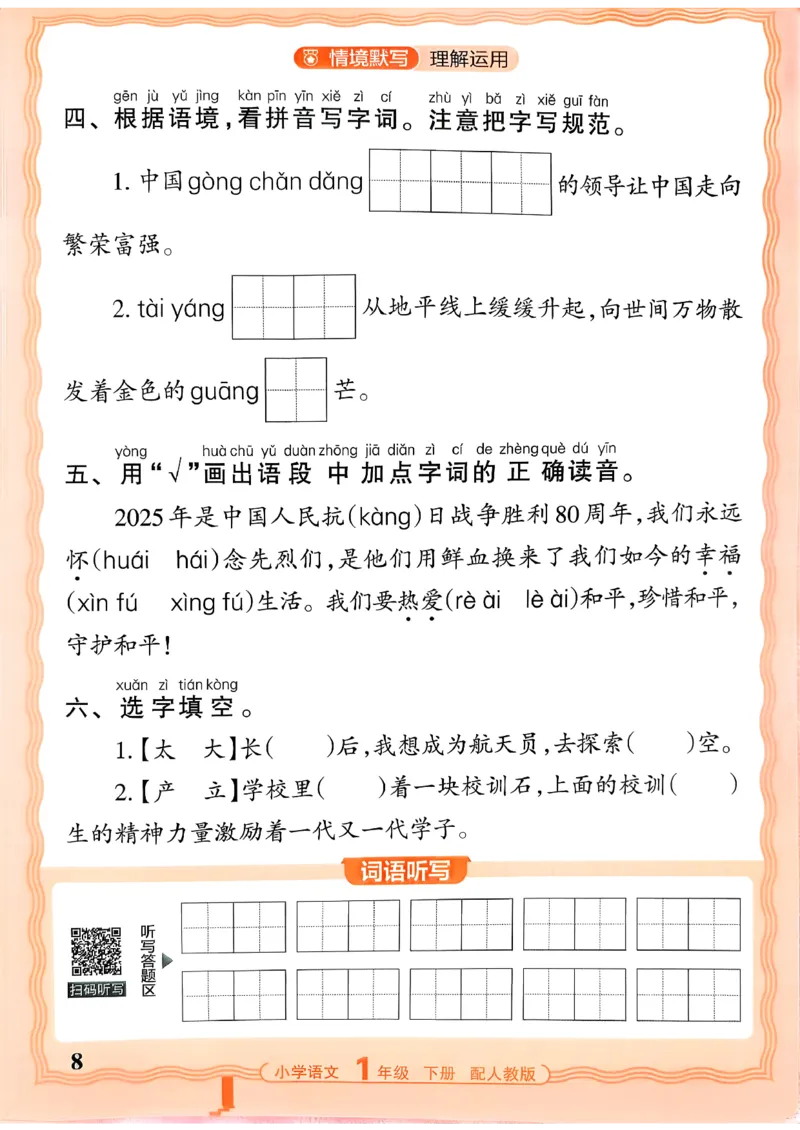 情境默写 理解运用
gēn jù yǔ jìng kàn pīn yīn xiě zì cí zhù yì bǎ zì xiě guī fàn
四、根据语境,看拼音写字词。注意把字写规范。
1. 中国gòng chǎn dǎng 的领导让中国走向
繁荣富强。
2. tài yáng 从地平线上缓缓升起,向世间万物散
发着金色的guāng 芒。
yòng huà chū yǔ duàn zhōng jiā diǎn zì cí de zhèng què dú yīn
五、用“√”画出语段中加点字词的正确读音。
2025年是中国人民抗(kàng)日战争胜利80周年,我们永远
怀(huái hái)念先烈们,是他们用鲜血换来了我们如今的幸福
(xìn fú xìng fú)生活。我们要热爱(rè ài lè ài)和平,珍惜和平,
守护和平!
xuǎn zì tián kòng
六、选字填空。
1.【太 大】长( )后,我想成为航天员,去探索( )空。
2.【产 立】学校里( )着一块校训石,上面的校训( )
生的精神力量激励着一代又一代学子。
词语听写
听写答题区
扫码听写
8
小学语文 1年级 下册 配人教版